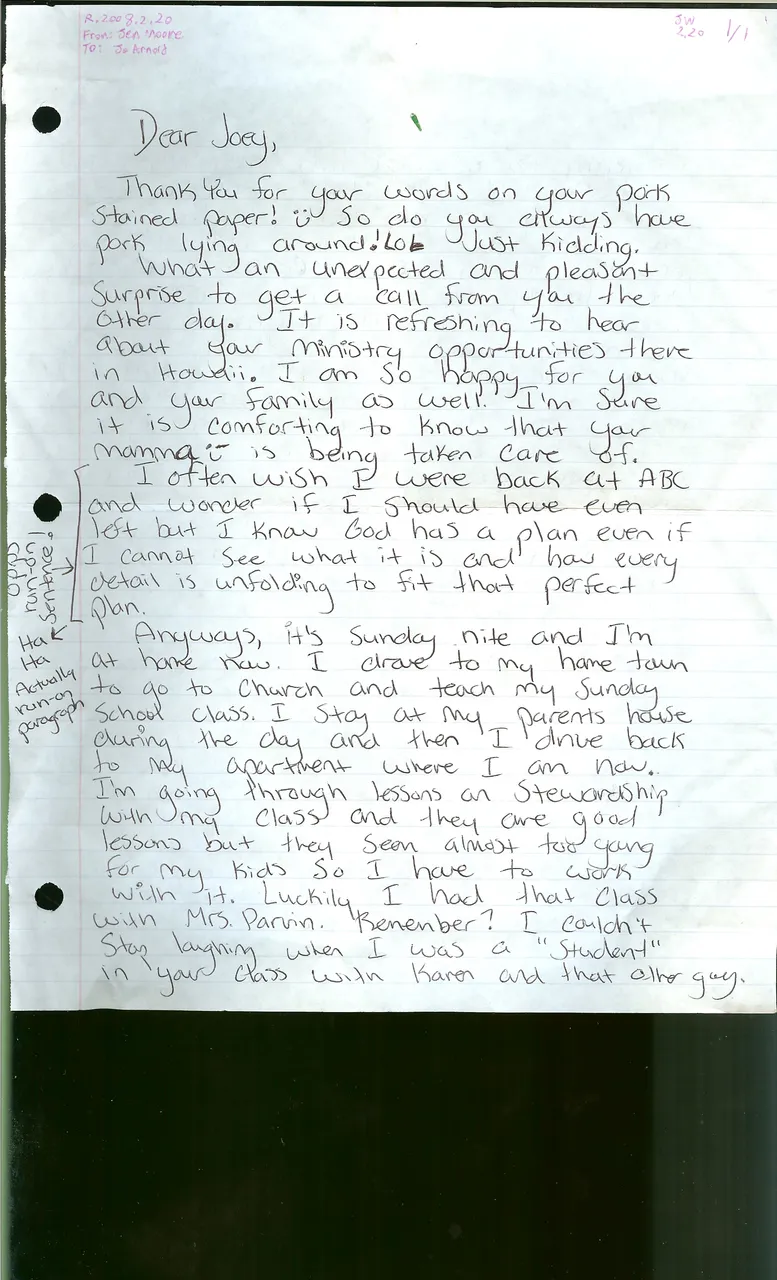 R.2008.2.20
From: Jen Moore
To: Jo Arnold
JW
2.20
1/1
Dear Joey,
Thank You for your words on your pork
stained paper! So do you always have
pork lying around! LOL Just Kidding.
What an unexpected and pleasant
Surprise to get a call from you the
other day. It is refreshing to hear
about your ministry opportunities there
in Hawaii. I am so happy for you
and your family as well. I'm Sure
it is comforting to know that your
mamma is being taken care of.
I often wish I were back at ABC
and wonder if I should have even
left but I know God has a plan even if
I cannot see what it is and how every
detail is unfolding to fit that perfect
plan.
Opps
run-on
Sentence!
Ha
Ha
Actually
run-on
paragraph
Anyways, it's Sunday nite and I'm
at home now. I drove to my home town
to go to Church and teach my Sunday
School class. I stay at my parents house
during the day and then I drive back
to my apartment where I am now.
I'm going through lessons on Stewardship
with my class and they are good
lessons but they seem almost too young
for my kids so I have to work
with it. Luckily I had that class
with Mrs. Parvin. Remember? I couldn't
Stop laughing when I was a "Student"
in your class with Karen and that other guy.